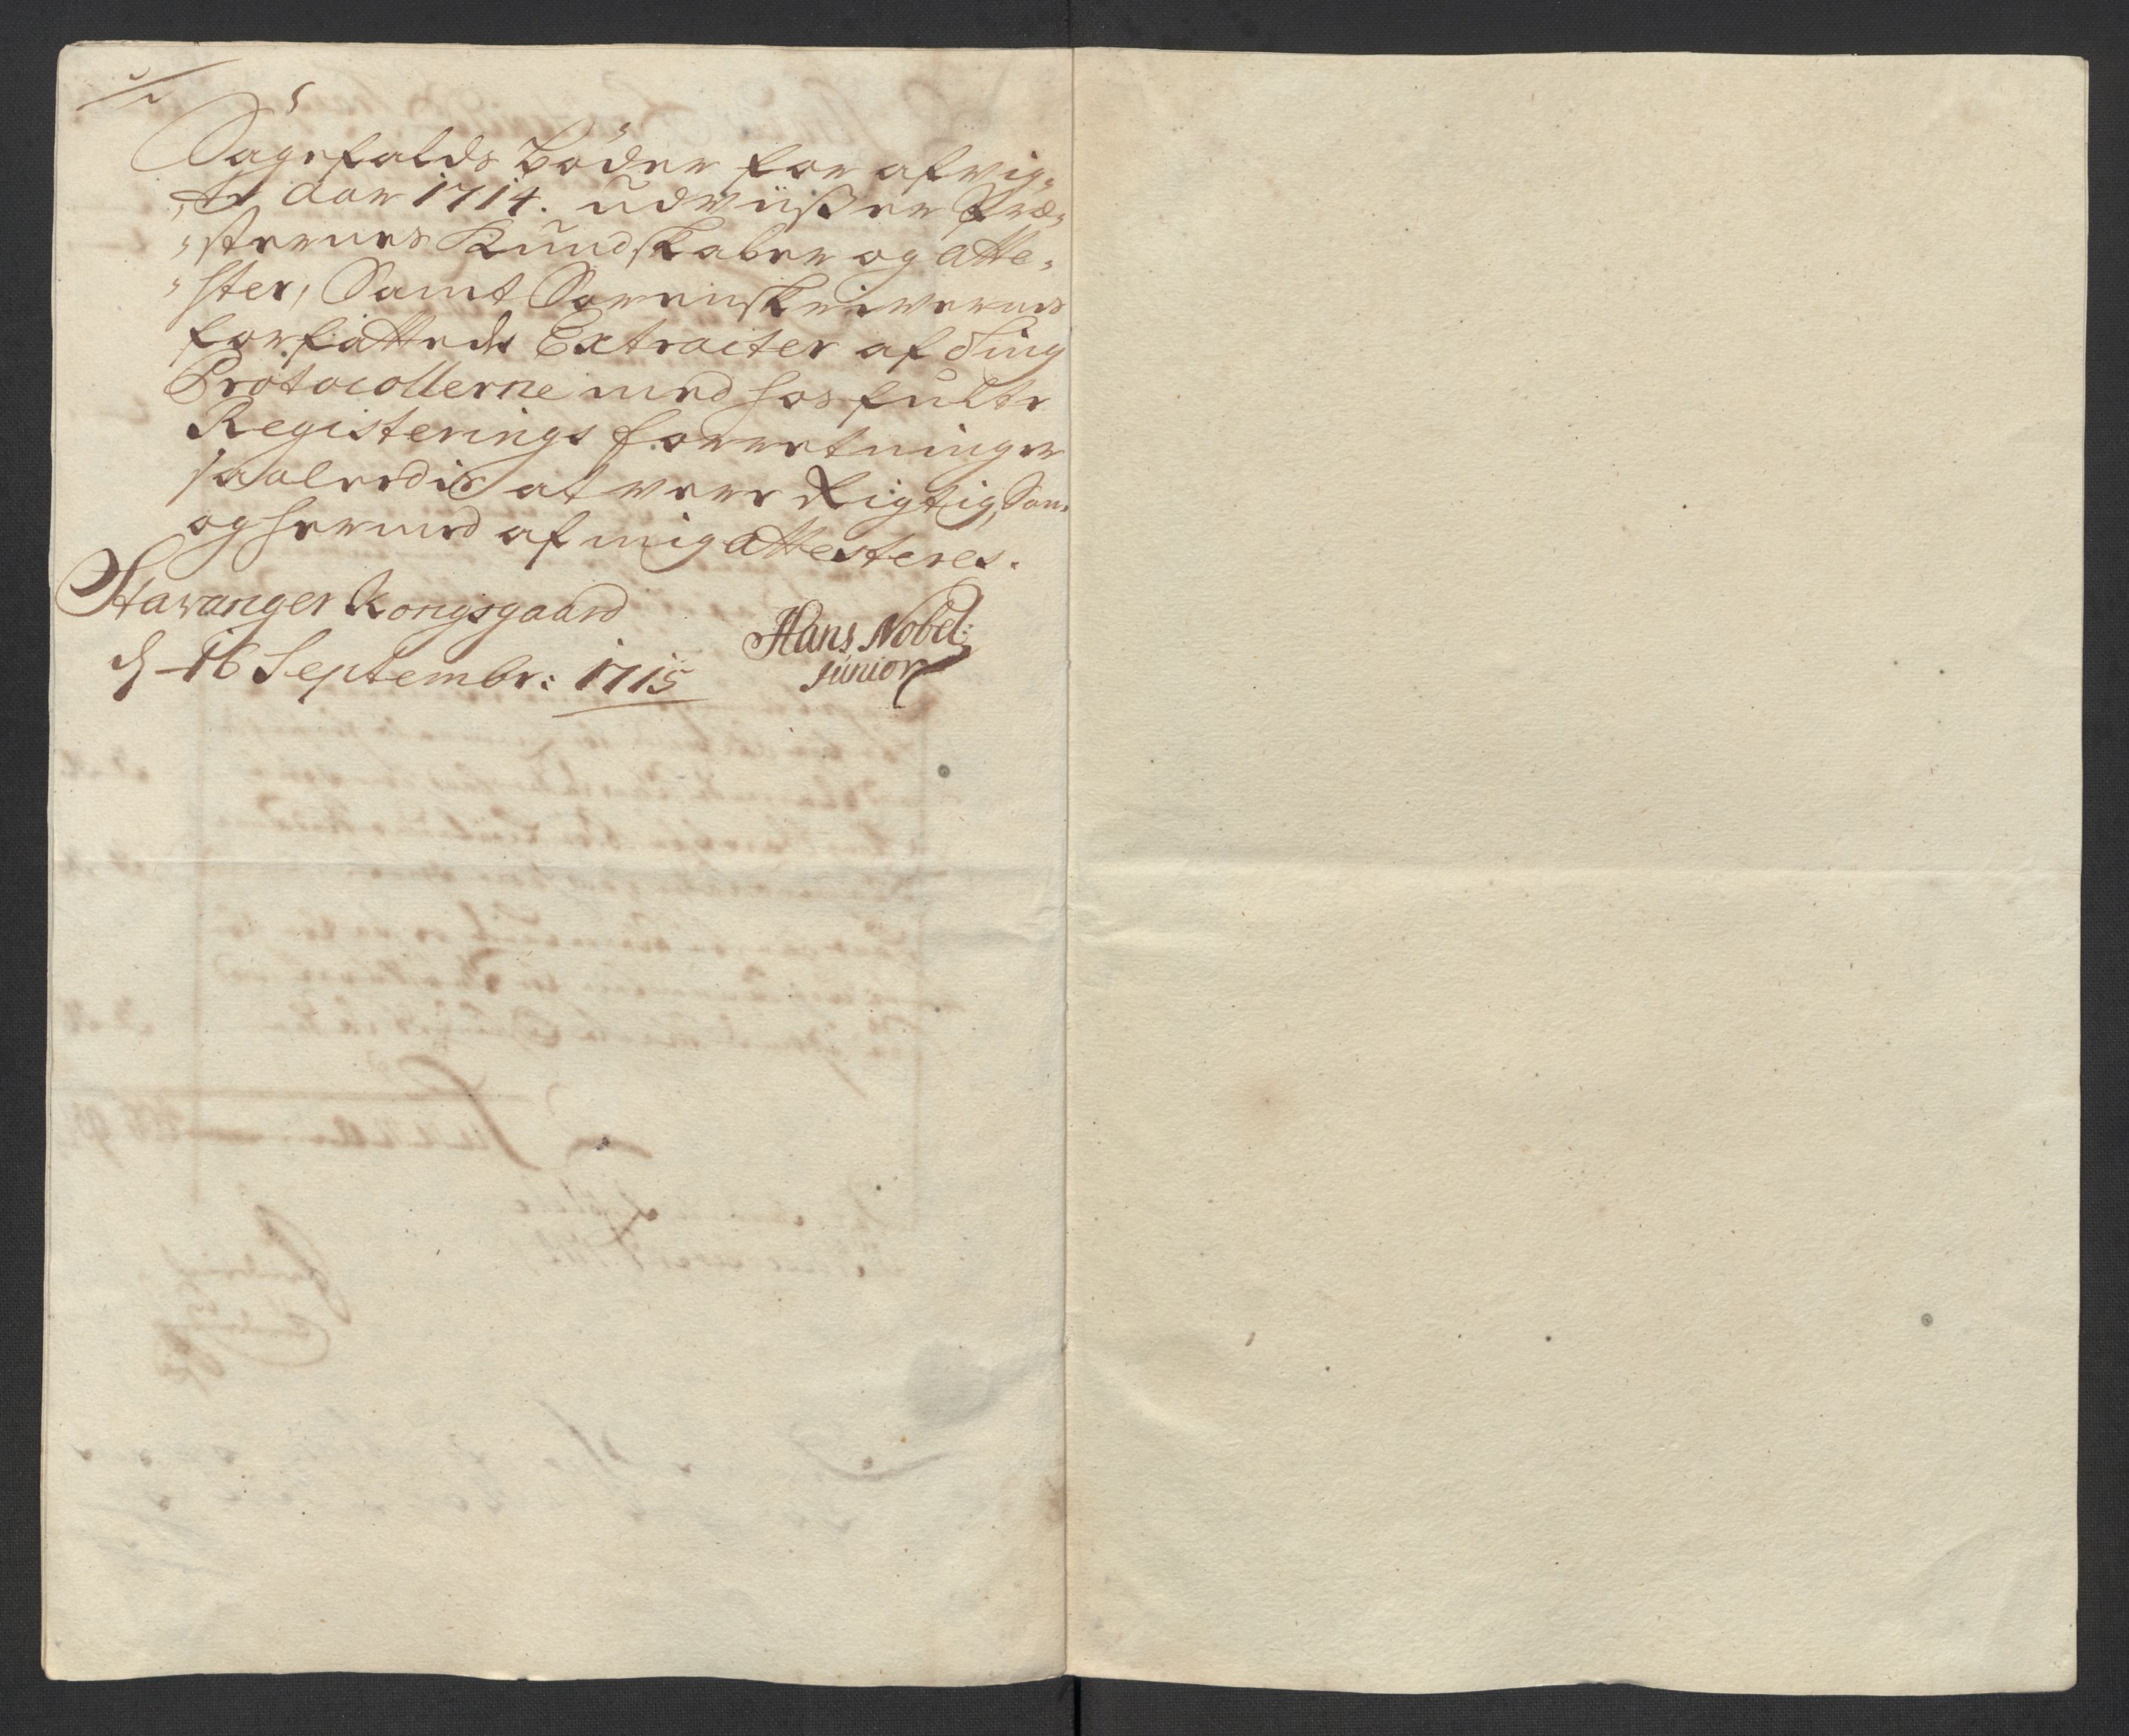 Sagefalds bøder for afvig„
„te Aar 1714. udviiszer Præ„
„sternes Kundskaber og Atte„
„ster, Samt Sorenskriverens
forfattede Extracter af Ting
Protocollerne med hosfulte
Registerings forretninger
saaledis at vere Rigtig, Som
og hermed af mig Attesteres.
Stavanger Kongsgaard
d 16 Septembr: 1715
Hans Nobel:
Junior